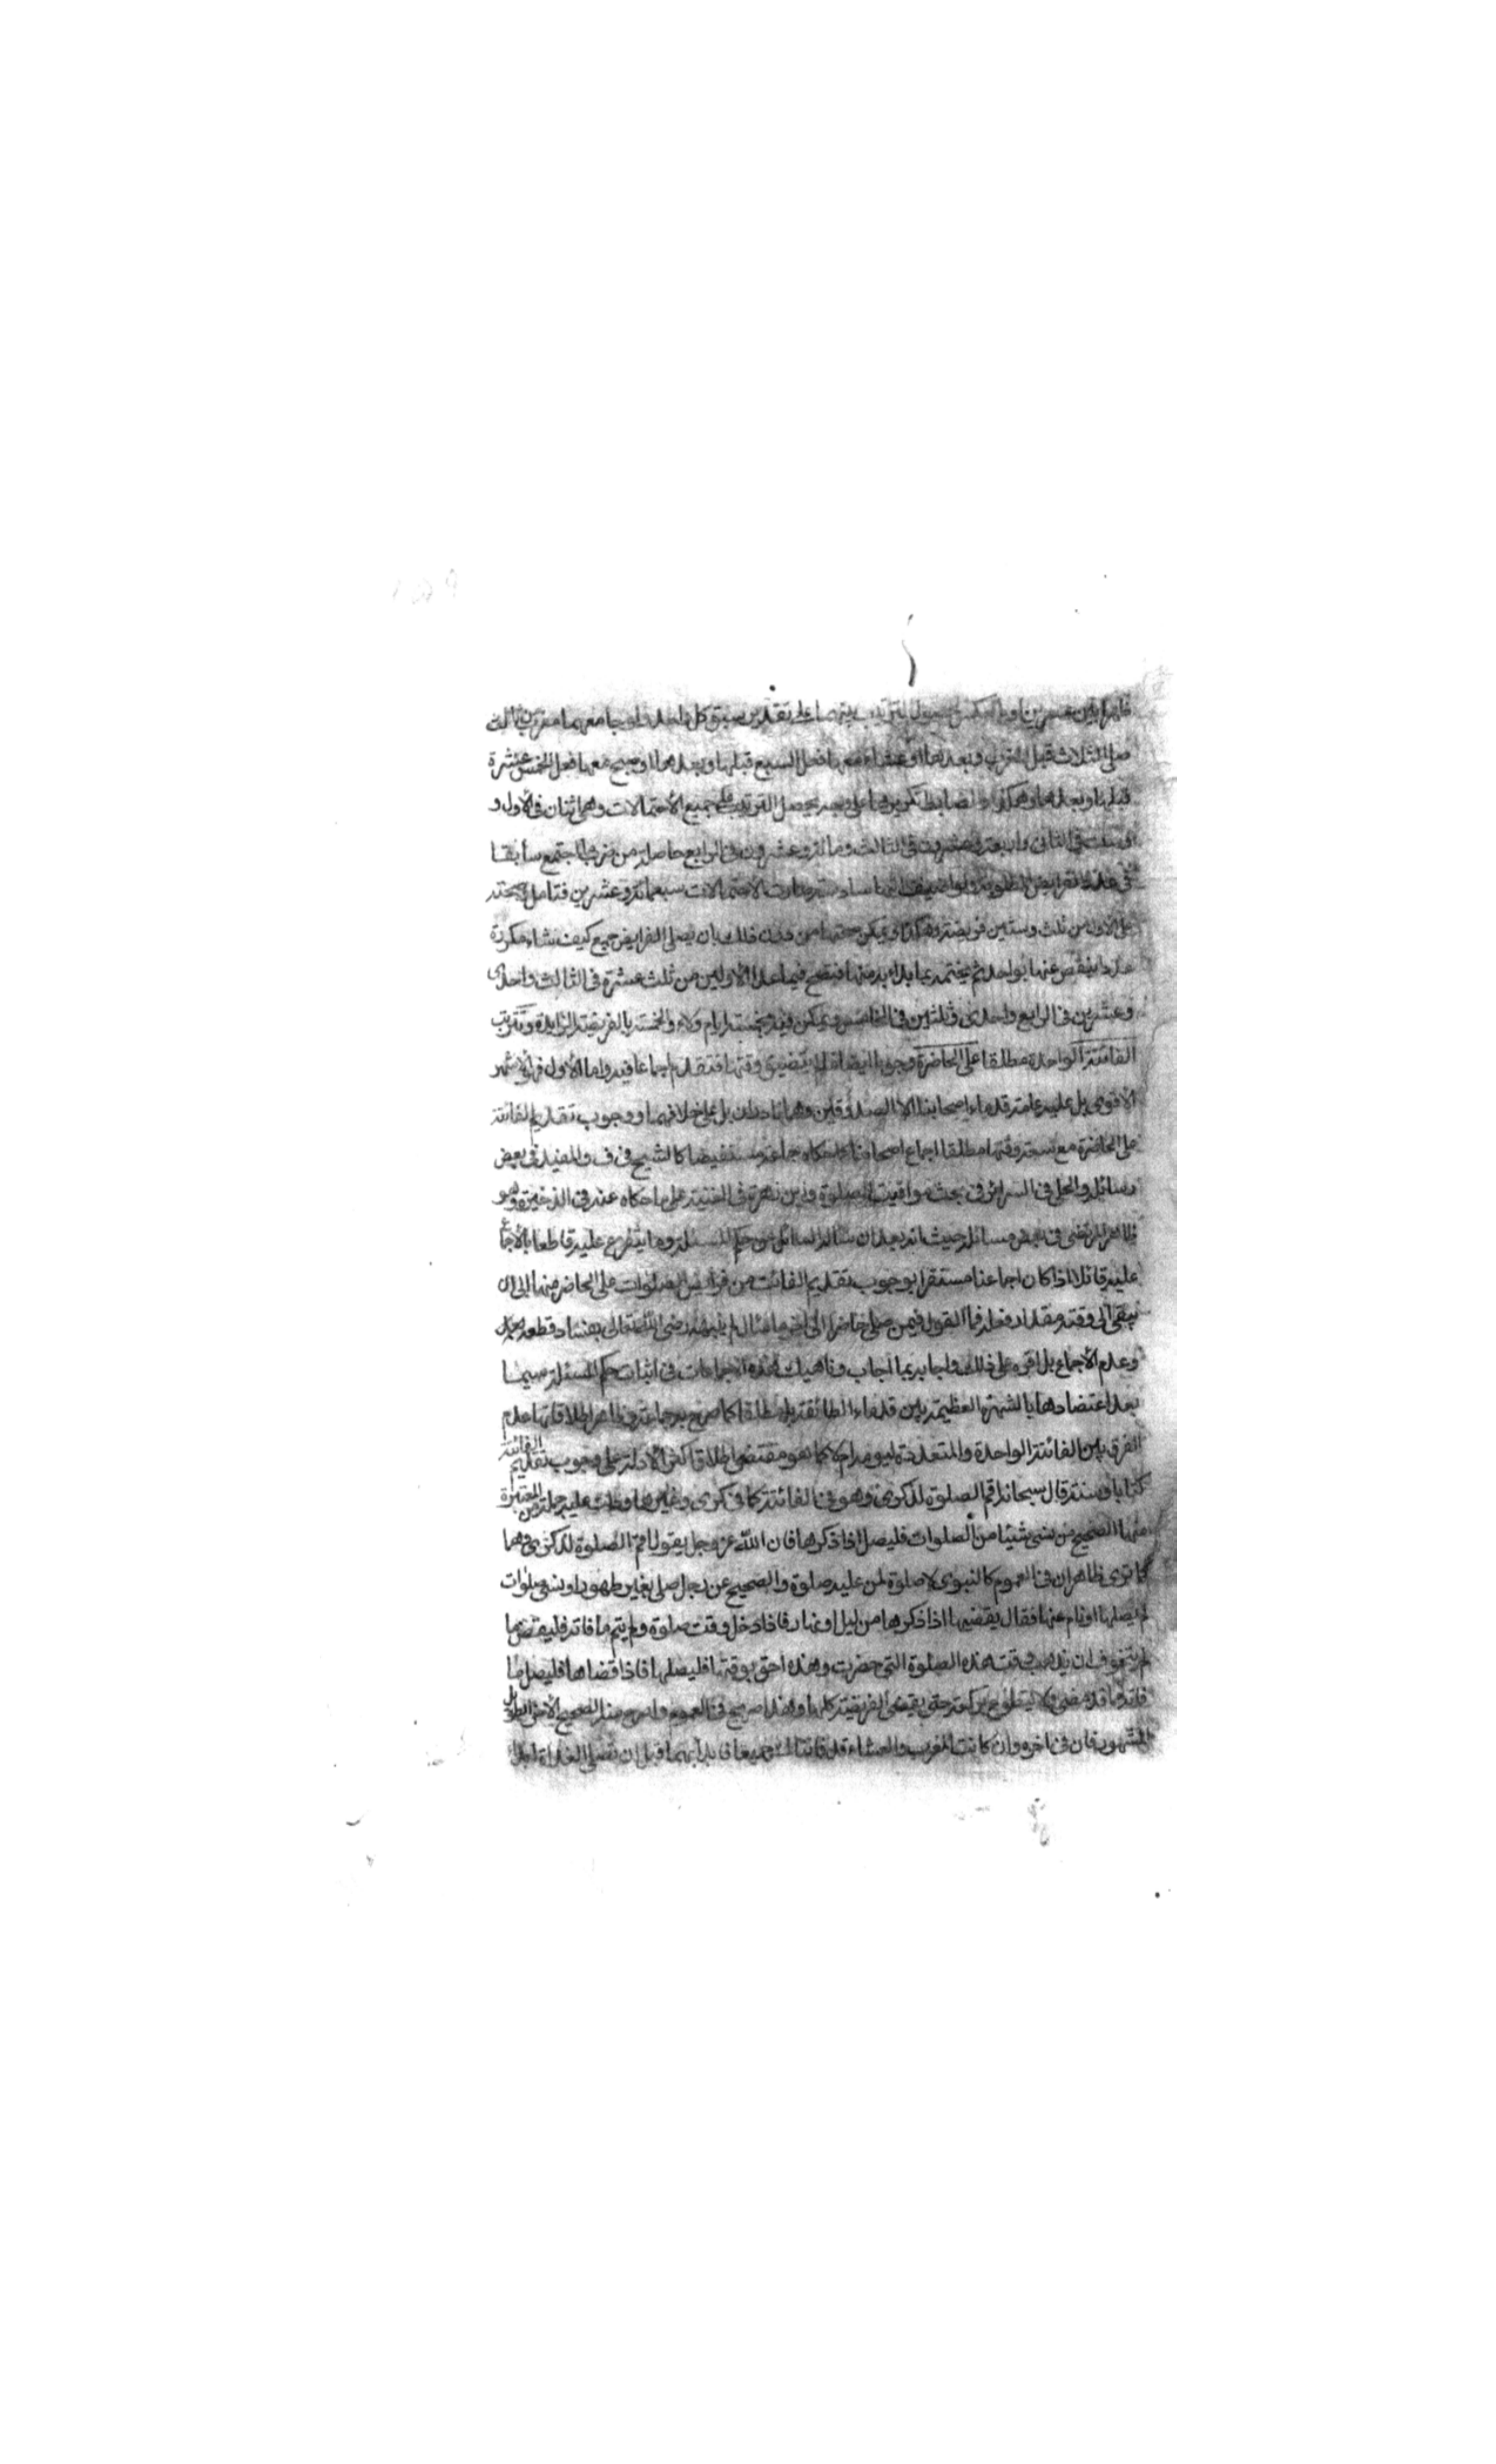 ظهرا بين عصرين او بالعكس لحصول الترتيب بينهما على تقديرى سبق كل واحد ولو جامعهما مغرب من ثالث
صلى الثلاث قبل المغرب وبعدها او عشاء معها فعل السبع قبلها وبعدها او صبح معها فعل الخمس عشرة
قبلها وبعدها وهكذا والضابط تكريرها على وجه يحصل الترتيب على جميع الأحتمالات وهى اثنان فى الأول و
وستة فى الثانى واربعة وعشرون فى الثالث ومائة وعشرون فى الرابع حاصلة من ضرب ما اجتمع سابقا
فى عدد الفرايض المطلوبة ولو اضيف اليها سادسة صارت الاحتمالات سبعمائة وعشرين فتامل صحته
على الاول من ثلث وستين فريضة وهكذا ويمكن صحتها من دون ذلك بان يصلى الفرايض جمع كيف شاء مكررة
عددا ينقص عنها بواحد ثم يختمه بما بداء به منها فتصح فيما عدا الأولين من ثلث عشرة فى الثالث واحدى
وعشرين فى الرابع واحدى وثلثين فى الخامس ويمكن فيه بخمسة ايام ولاء والختمه بالفريضة الزايدة وتترتب
الفائتة الواحدة مطلقا على الحاضرة وجوبا ايضا ما لم يتضيق وقتها فتقدم اجماعا فيه واما الأول فهو الأشهر
الاقوى بل عليه عامة قدماء اصحابنا الا الصدوقين وهما نادران بل على خلافهما ووجوب تقديم الفائتة
على الحاضرة مع سعة وقتها مطلقا اجماع اصحابنا كما حكاه جماعة مستفيضا كالشيخ فى ف والمفيد فى بعض
رسائله والحلى فى السرائر فى بحث مواقيت الصلوة وابن زهرة فى الغنية على ما حكاه عنه فى الذخيرة وهو
ظاهر المرتضى فى بعض مسائله حيث انه بعد ان سئاله السائل عن حكم المسئلة وما يتفرع عليه قاطعا بالأجماع
عليه قائلا اذا كان اجماعنا مستقرا بوجوب تقديم الفائت من فرايض الصلوات على الحاضر منها الى ان
يبقى الى وقته مقدار فعله فما القول فيمن صلى حاضرا الى اخر ما سئال لم ينبهه رضى الله تعالى بفساد قطعه
وعدم الأجماع بل اقره على ذلك واجابه بما اجاب وناهيك هذه الاجماعات فى اثبات حكم المسئلة سيما
بعد اعتضادها بالشهرة العظيمة بين قدماء الطائفة بل مطلقا كما صرح به جماعة وظاهر اطلاقاتها عدم
الفرق بين الفائتة الواحدة والمتعددة ليومه ام لا كما هو مقتضى اطلاق اكثر الأدلة على وجوب تقديم الفائتة
كتابا وسنة قال سبحانه اقم الصلوة لذكرى وهو فى الفائتة كما فى كرى وغيرها ودلت عليه جملة من المعتبرة
منها الصحيح من نسى شيئا من الصلوات فليصل اذا ذكرها فان الله عز وجل يقول اقم الصلوة لذكرى وهما
كما ترى ظاهران فى العموم كالنبوى لا صلوة لمن عليه صلوة والصحيح عن رجل صلى بغير طهور او نسى صلوات
لم يصلها او نام عنها فقال يقضيها اذا ذكرها من ليل او نهار فاذا دخل وقت صلوة ولم يتم ما فاته فليقض ما
لم يتخوف ان يذهب وقت هذه الصلوة التى حضرت وهذه احق بوقتها فليصلها فاذا قضاها فليصل ما
فاته ما قد مضى ولا يتطوع بركعة حتى يقضى الفريضة كلها وهذا صريح فى العموم واصرح منه الصحيح الأخر الطويل
المشهور فان فى اخره وان كانت المغرب والعشاء قد فاتتاك جميعا فابدأ بهما قبل ان تصلى الغداة ابدأ